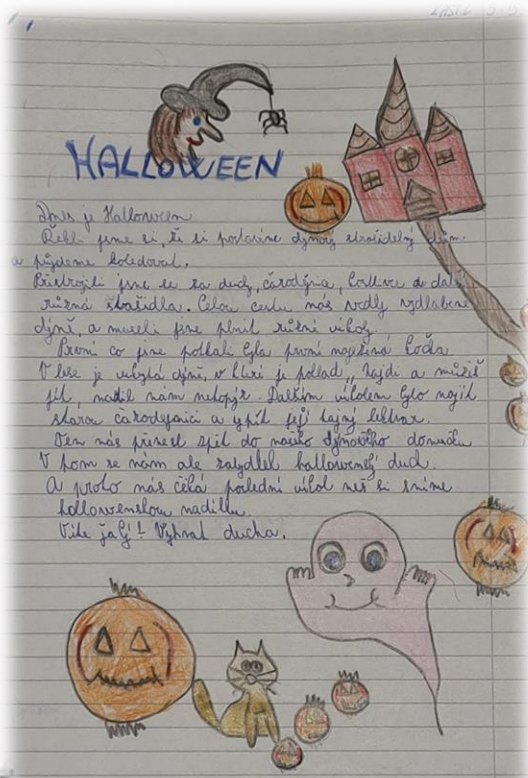 HALLOWEEN
Dnes je Halloween
Řekli jsme si, že si postavíme dýňový strašidelný dům
a půjdeme koledovat.
Přestrojili jsme se za duchy, čarodějnia, kostlivce
různá strašidla. Celou cestu nás vedly vydlabené
dýně, a museli jsme plnit různé úkoly
První co jsme potkali byla první kočka
V lese je dýně, v blízi je poklad, najdi a můžeš
jít, nadil nám netopýr. Dalším úkolem bylo najít
starou čarodejnici a vypít její tajný lektvar.
Ten nás přenesl zpět do našeho dýňového domečku
V pom se nám ale zabydlel hallowenský duch.
A proto nás čeká poslední úkol než si sníme
hollowenskou nadílku.
Víte jaký? Vyhnat ducha.